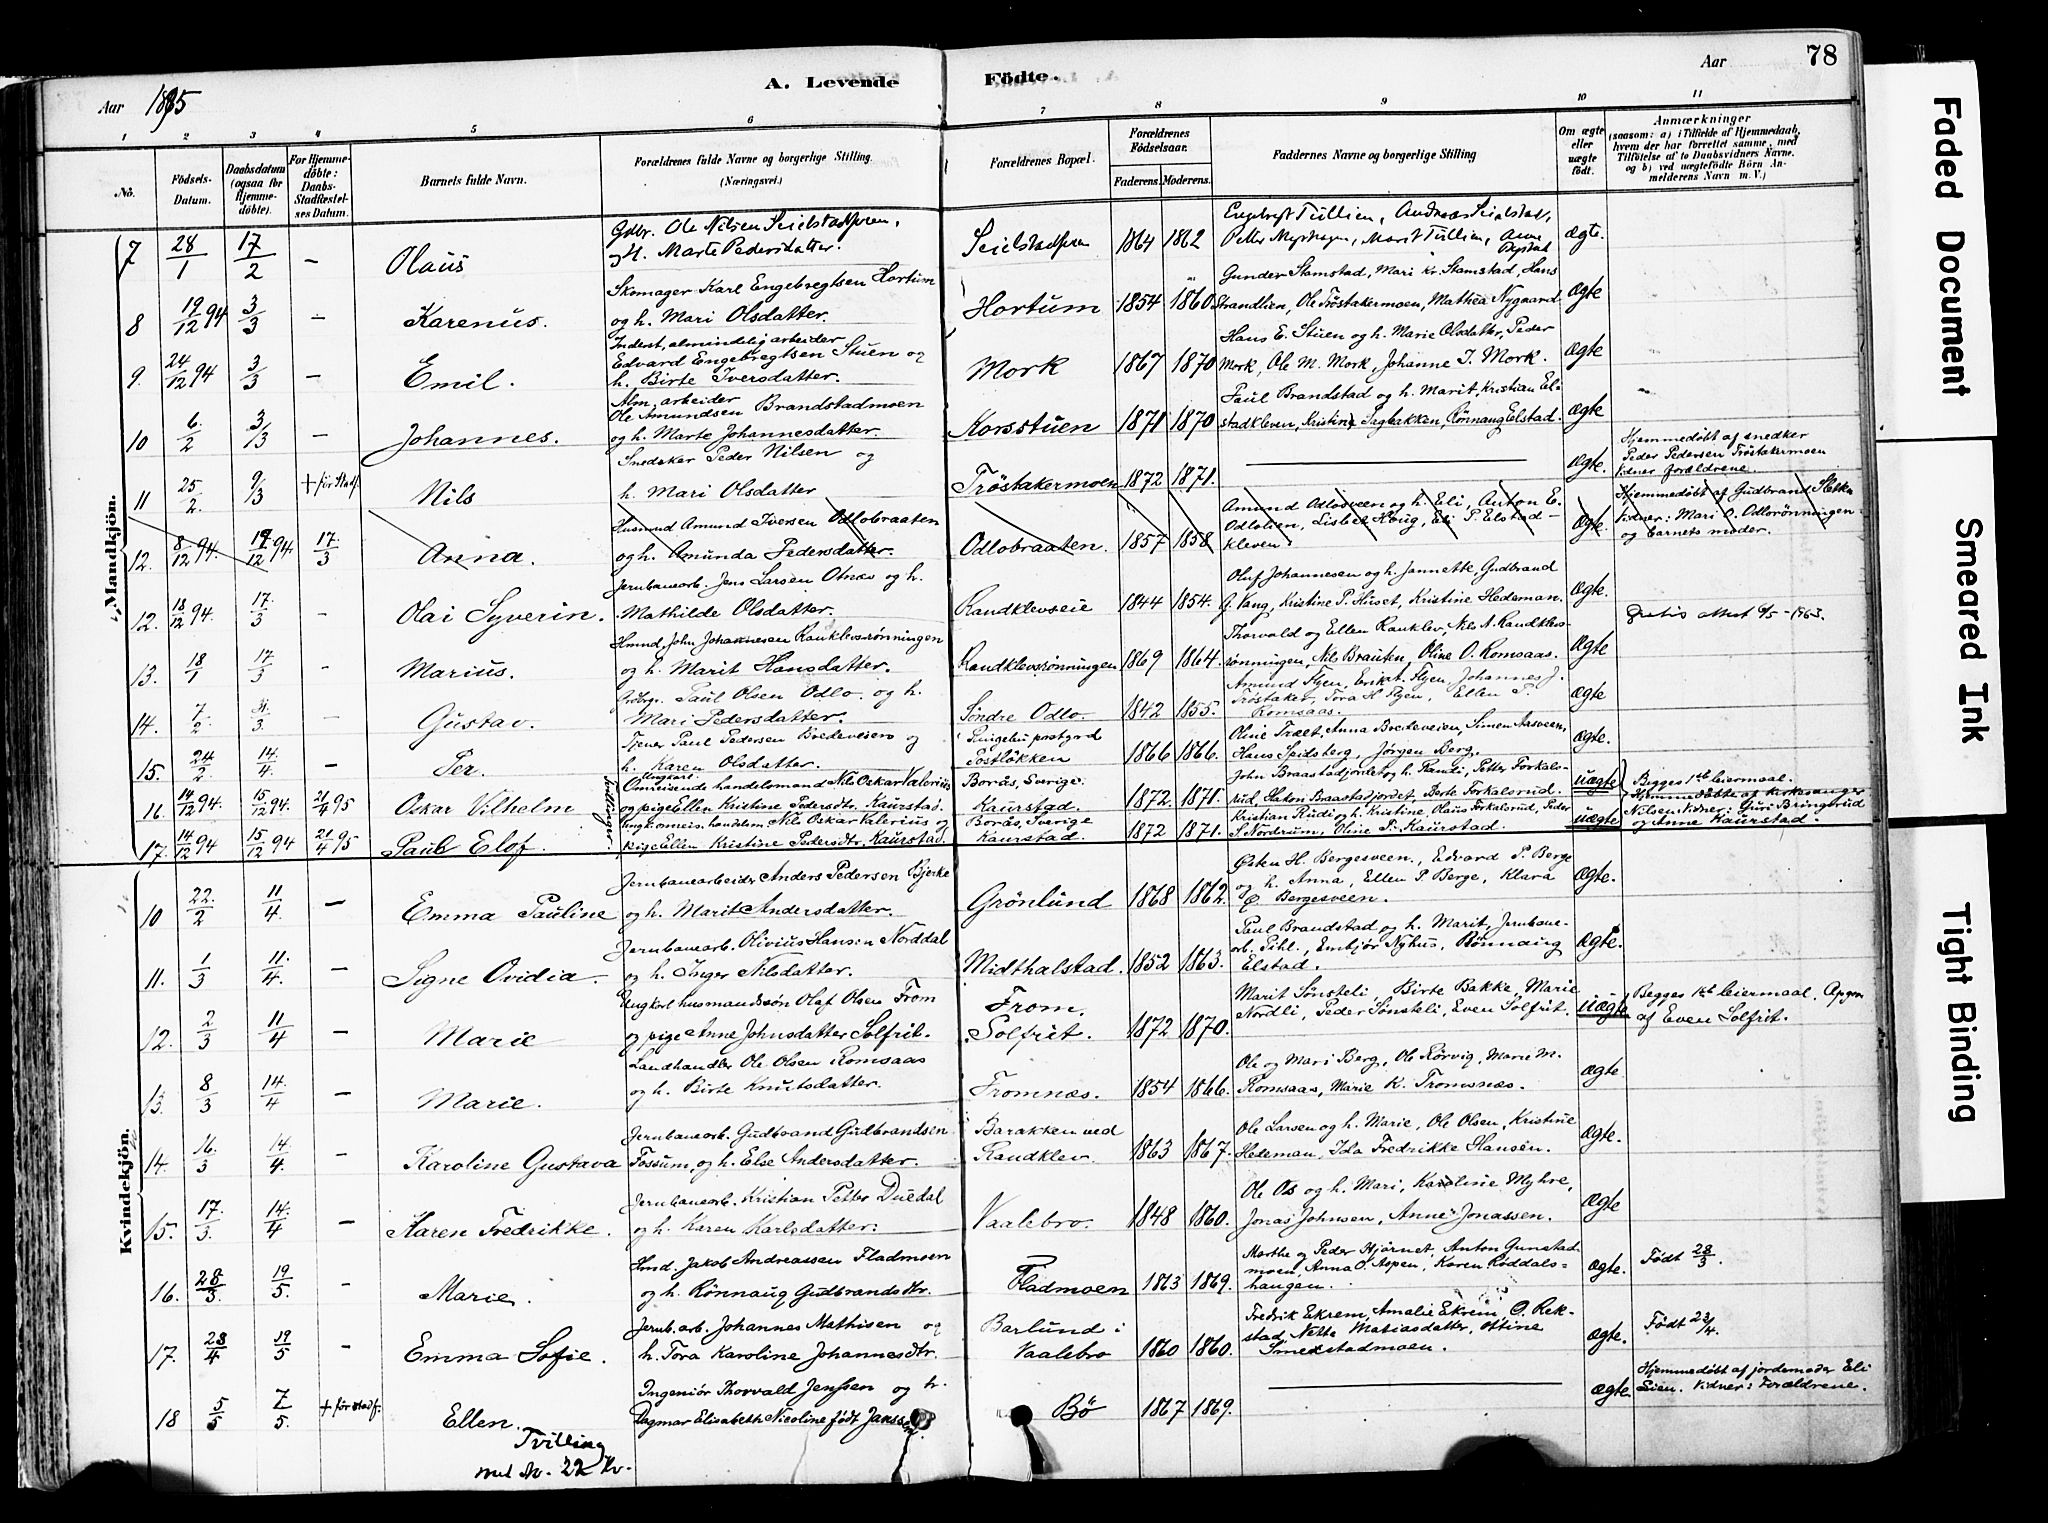 78
Aar 1895
A. Levende Födte.
Aar
1 2 3 4 5 6 7 8 9 10 11
No.
Födsels-Datum.
Daabsdatum (ogsaa for Hjemme-döbte).
For Hjemme-döbte: Daabs-Stadfæstel-ses Datum.
Barnets fulde Navn.
Forældrenes fulde Navne og borgerlige Stilling. (Næringsvei.)
Forældrenes Bopæl.
Forældrenes Födselsaar.
Faderens. Moderens.
Faddernes Navne og borgerlige Stilling
Om ægte eller uægte födt.
Anmærkninger
(saasom: a) i Tilfælde af Hjemmedaab, hvem der har forrettet samme, med Tilföielse af to Daabsvidners Navne, og b) ved uægtefödte Börn An-melderens Navn m. V.)
Mandkjön.
7 28/1 17/2 — Olaus Gdbr. Ole Nilsen og h. Marte Pedersdatter. 1864 1862 Engebregt Tullien, Andreas Seielstad, Petter Myrhagen, Marit Tullien, Anne ægte.
8 19/12 94 3/3 — Karenus. Skomager Karl Engebregtsen Hortum og h. Mari Olsdatter. Hortum 1854 1860 Gunder Stamstad, Mari Kr. Stamstad, Hans Strandlien, Ole Tröstakermoen, Mathea Nygaard ægte
9. 24/12 94 3/3 — Emil. Inderst, almindelig arbeider Edvard Engebregtsen Stuen og h. Birte Iversdatter. Mork 1867 1870 Hans E. Stuen og h. Marie Olsdatter, Peder Mork, Ole M. Mork, Johanne I. Mork. ægte
10 6/2 3/3 — Johannes. Alm. arbeider Ole Amundsen Brandstadmoen og h. Marte Johannesdatter. Korsstuen 1871 1870 Paul Brandstad og h. Marit, Kristian El-stadkleven, Kristine Sagbakken, Rönnaug Elstad. ægte
11 25/2 9/3 + før Stadf. Nils Snedker Peder Nilsen og h. Mari Olsdatter Tröstakermoen 1872 1871. ægte. Hjemmedöbt af snedker Peder Pedersen Tröstakermoen Vidner forældrene.
12. 8/12 94. 19/12 94 17/3 Anna. Husmand Amund Iversen Odlobraaten og h. Amunda Pedersdatter. Odlobraaten. 1857 1858 Amund Odloöveen og h. Eli, Anton E. Odlolien, Lisbet Haug, Eli P. Elstad-kleven. ægte. Hjemmedöbt af Gudbrand Vidner: Mari O. Odlorönningen og barnets moder.
12. 18/12 94. 17/3 - Olai Syverin. Jernbanearb. Jens Larsen Otnes og h. Mathilde Olsdatter. Randklevseie 1844 1854. Oluf Johannesen og h. Jannette, Gudbrand G. Vang, Kristine P. Huset, Kristine Hedeman. ægte. Gratis Attest 9/5 - 1963.
13. 18/1 17/3 - Marius. Hmd. John Johannesen Rauklevsrönningen og h. Marit Hansdatter. Randklevsrönningen 1869 1864. Thorvald og Ellen Rauklev, Nils A. Randklevs-rönningen, Nils Brauten, Oline O. Romsaas. ægte
14. 7/2 31/3 - Gustav. Gdbr. Paul Olsen Odlo. og h. Mari Pedersdatter. Söndre Odlo. 1842 1855. Amund Flyen, Erik A. Flyen, Johannes J. Tröstaker, Tora H Flyen, Ellen P. Romsaas. ægte
15. 24/2. 14/4. - Per. Tjener Paul Pedersen Bredeveien og h. Karen Olsdatter. Ringebu postgrd Postlökken 1866 1866. Oline Træet, Anna Bredeveien, Simen Aasveen, Hans Spidsberg, Jörgen Berg. ægte.
16. 14/12 94. 15/12 94. 21/4 95 Oskar Vilhelm Ungkarl Omreisende handelsmand Nils Oskar Valerius og pige Ellen Kristine Pedersdtr. Kaurstad. Borås, Sverige. Kaurstad. 1872. 1871. John Braastadjordet og h. Randi, Petter Forkals-rud, Hakon Braastadjordet, Berte Forkalsrud. uægte Begges 1ste leiermaal. Hjemmedöbte af kirkesanger Nilsen. Vidner: Guri Bringsrud og Anne Kaurstad.
17. 14/12 94 15/12 94 21/4 95 Paul Elof. Ungk. omreis. handelsm. Nils Oskar Valerius og pige Ellen Kristine Pedersdtr. Kaurstad. Borås, Sverige Kaurstad. 1872 1871. Kristian Rudi og h. Kristine, Olaus Forkalsrud, Peder S. Nordrum, Oline P. Kaurstad. uægte
Tvillinger
Kvindekjön.
10 22./2 11/4. — Emma Pauline Jernbanearbeider Anders Pedersen Bjerke og h. Marit Andersdatter. Grönlund 1868 1862. Østen H. Bergesveen., Edvard P. Berge og h. Anna, Ellen P. Berge, Klara E. Bergesveen. ægte.
11. 1/3 11./4. — Signe Ovidia. Jernbanearb. Olivius Hansen Norddal og h. Inger Nilsdatter. Midthalstad. 1852 1863. Paul Brandstad og h. Marit, Jernbane-arb. Pihl., Embjör Nyhus, Rönnaug Elstad. ægte.
12. 2/3 11/4 — Marie Ungkarl husmandssön Olaf Olsen From og pige Anne Johnsdatter Solfrit. From. Solfrit. 1872 1870. Marit Sönsteli, Birte Bakke, Marie Nordli, Peder Sönsteli, Even Solfrit. uægte Begges 1ste leiermaal. Opgave af Even Solfrit.
13. 8/3 14./4 — Marie. Landhandler Ole Olsen Romsaas og h. Birte Knutsdatter. Fromnæs. 1854 1866. Ole og Mari Berg, Ole Rörvig, Mari M. Romsaas, Marie K. Tromsnæs. ægte
14. 16./3 14./4. — Karoline Gustava Jernbanearb. Gudbrand Gudbrandsen Fossum, og h. Else Andersdatter. Barakken ved Randklev. 1863 1867. Ole Larsen og h. Marie, Ole Olsen, Kristine Hedeman, Ida Fredrikke Hansen. ægte.
15. 17./3. 14./4 — Karen Fredrikke. Jernbanearb. Kristian Petter Duedal og h. Karen Karlsdatter. Vaalebro. 1848 1860. Ole Os og h. Mari, Karoline Myhre, Jonas Johnsen, Anne Jonassen. ægte
16. 28/3. 19/5. - Marie. Hmd. Jakob Andreassen Fladmoen og h. Rönnaug Gudbrandsdtr. Fladmoen 1863 1869. Marthe og Peder Hjörnet, Anton Gunstad-moen, Anna O. Aspen, Karen Röddals-haugen. ægte. Födt 23/3.
17. 28/4 19/5 - Emma Sofie. Jernb. arb. Johannes Mathisen og h. Tora Karoline Johannesdtr. Barlund i Vaalebro 1860 1860. Fredrik Ekrem, Amalie Ekrem, O. Rek-stad, Netta Matiasdatter, Ottine Smestadmoen. ægte. Födt 23/4.
18 5/5 7/5. + før stadf. Ellen. Ingeniör Thorvald Jenssen og h. Dagmar Elisabeth Nicoline født Janssen. Bö 1867 1869. ægte. Hjemmedöbt af jordemoder Eli Lien. Vidner: Forældrene.
Tvilling
med No. 22 Kv.
Faded Document
Smeared Ink
Tight Binding